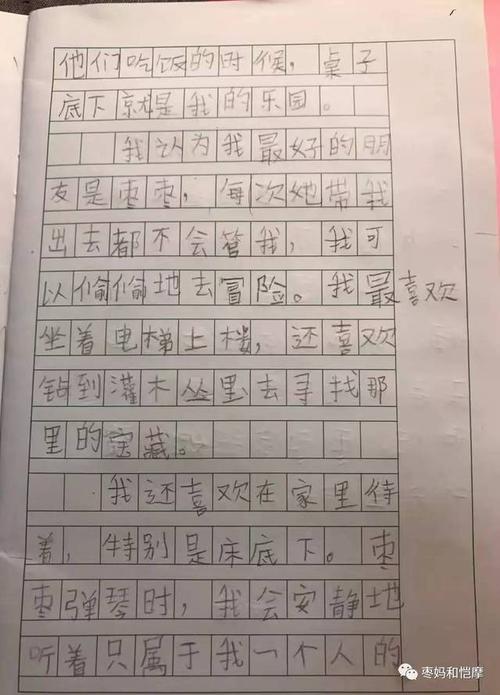 他们吃饭的时候，桌子
底下就是我的乐园。
我认为我最好的朋
友是枣枣，每次她带我
出去都不会管我，我可
以偷偷地去冒险。我最喜欢
坐着电梯上楼，还喜欢
钻到灌木丛里去寻找那
里的宝藏。
我还喜欢在家里待
着，特别是床底下。枣
枣弹琴时，我会安静地
听着只属于我一个人的
枣妈和恺摩